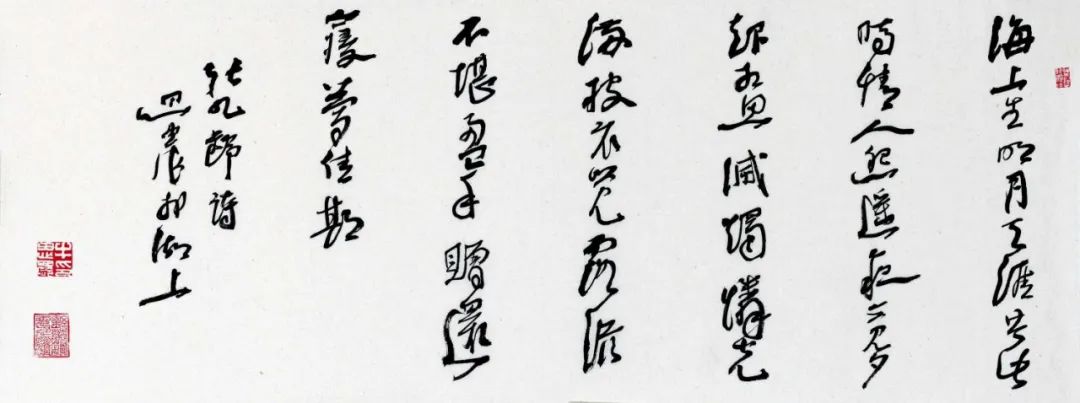 海上生明月天涯共此
時情人怨遙夜竟夕
起相思滅燭憐光
滿披衣覺露滋
不堪盈手贈還
寢夢佳期
張九齡詩
湖上